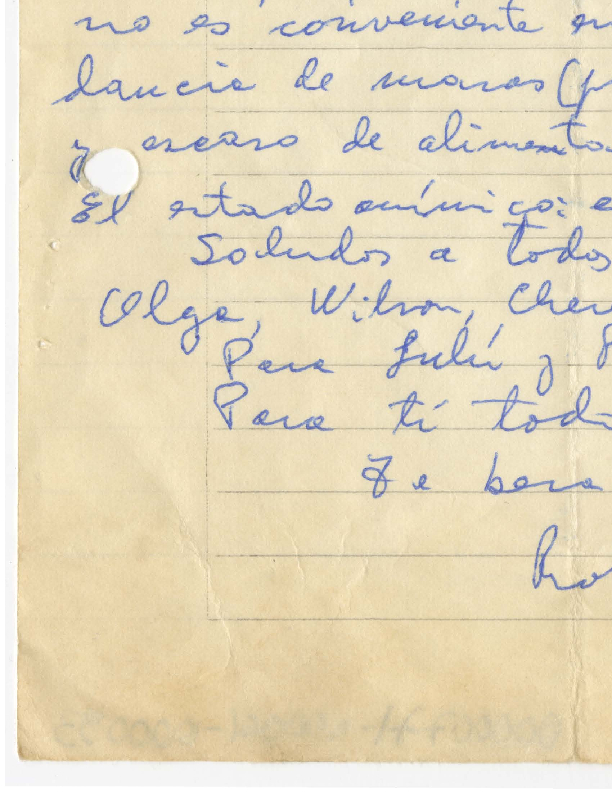 no es conveniente
dancia de masas (p
y escaso de alimento
El estado anímico: e
Saludos a todos
Olga, Wilson, Che
Para Lulú y
Para tí tod
Te besa